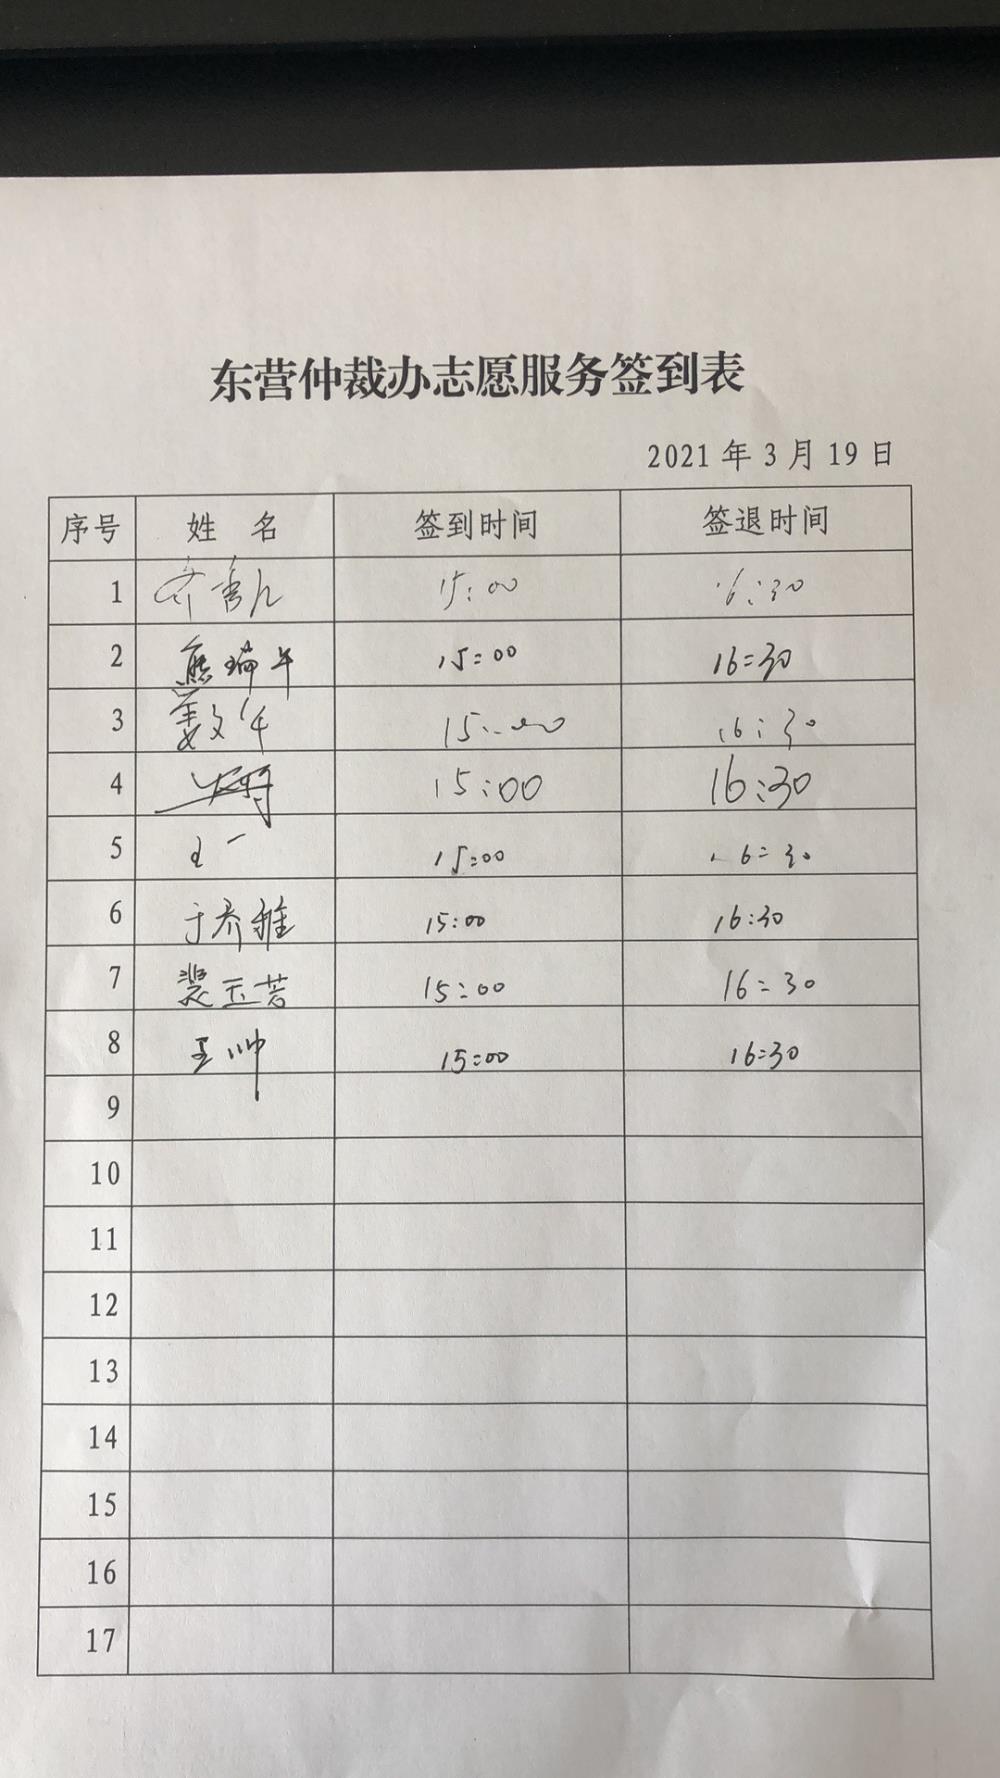 东营仲裁办志愿服务签到表
2021年3月19日
序号 姓 名 签到时间 签退时间
1 15:00 16:30
2 熊瑞 15:00 16:30
3 姜 15:00 16:30
4 15:00 16:30
5 15:00 16:30
6 于乔雅 15:00 16:30
7 裴玉茗 15:00 16:30
8 王帅 15:00 16:30
9
10
11
12
13
14
15
16
17